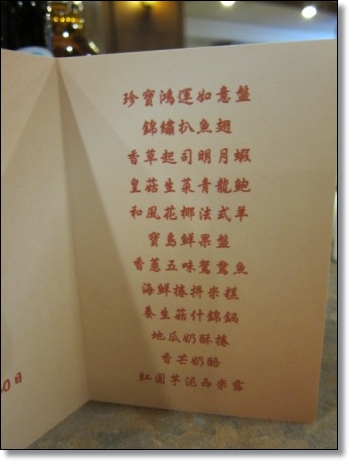 珍寶鴻運如意盤
錦繡扒魚翅
香草起司明月蝦
皇菇生菜青龍鮑
和風花椰法式羊
寶島鮮果盤
香蔥五味鴛鴦魚
海鮮捲拼米糕
養生菇什錦鍋
地瓜奶酥捲
香芒奶酪
紅圓芋泥西米露
0日